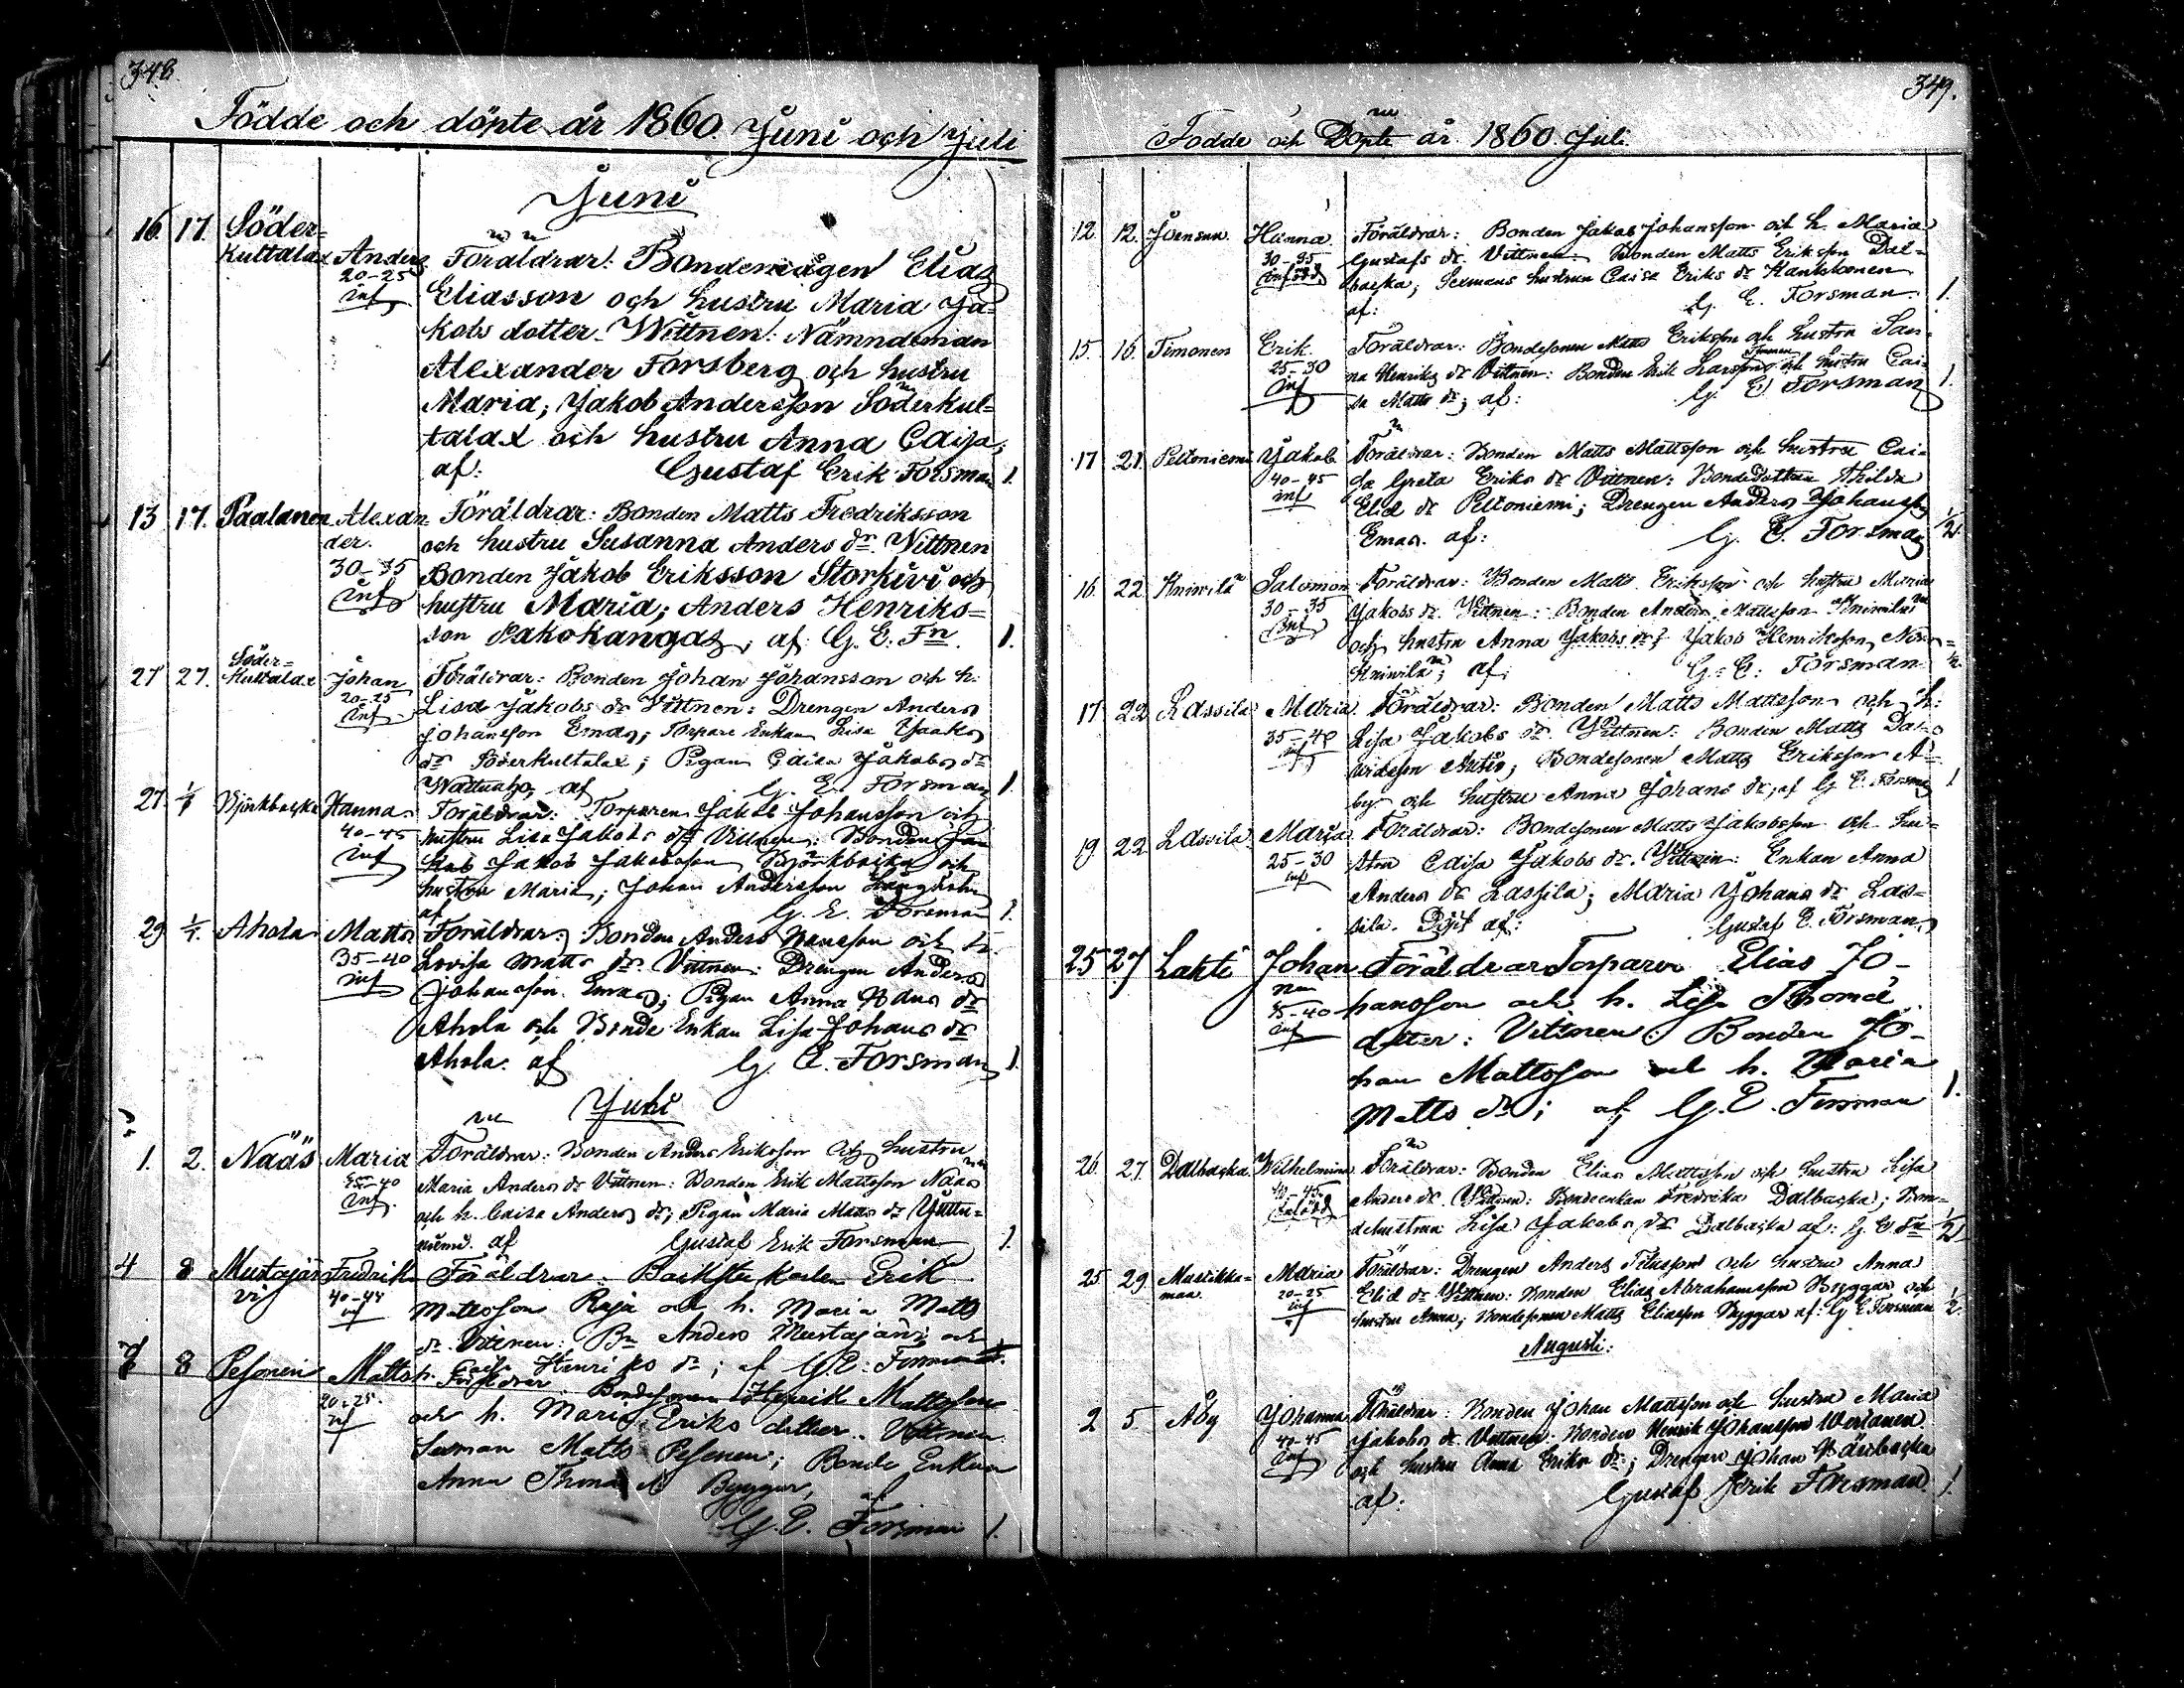 348.
Födde och döpte år 1860. Juni och Juli
Juni
16. 17. Söder=
Kultalax Anders Föräldrar: Bondemågen Elias
20-25 Eliasson och hustru Maria Ja-
inf kobs dotter. Wittnen: Nämndeman
Alexander Forsberg och hustru
Maria; Jakob Andersson Söderkul=
talax och hustru Anna Caisa,
af: Gustaf Erik Forsman 1.
13 17. Paalanen Alexan- Föräldrar: Bonden Matts Fredriksson
der. och hustru Susanna Anders dr. Wittnen
30-35 Bonden Jakob Eriksson Storkivi och
inf hustru Maria; Anders Henriks=
son Pakokangas; af: G. E. Fn. 1.
27 27. Söder=
Kultalax Johan Föräldrar: Bonden Johan Johansson och h.
20-25 Lisa Jakobs dr Vittnen: Drengen Anders
inf Johansson Emas; Torpare Enkan Lisa Jaakos
dr Söderkultalax; Pigan Caisa Jakobs dr
af G. E. Forsman 1.
27 1/7 Björkbacka Hanna Föräldrar: Torparen Jakob Johansson och
40-45 hustru Lisa Jakobs dr Vittnen: Bonden Ja-
inf Jakob Jakobsson Björkbacka och
hustru Maria; Johan Andersson Långholm
af G. E. Forsman 1.
29 1/7. Ahola Matts Föräldrar: Bonden Anders Hansson och h.
35-40 Lovisa Matts dr. Vittnen: Drengen Anders
inf Johansson Emas; Pigan Anna Adams dr
Ahola och Bonde Enkan Lisa Johans dr
Ahola. af G. E. Forsman 1.
Juli
1. 2. Nääs Maria Föräldrar: Bonden Anders Eriksson och hustru
35-40 Maria Anders dr Vittnen: Bonden Erik Mattsson Nääs
inf. och h. Caisa Anders dr; Pigan Maria Matts dr Yuttu=
niemi. af Gustaf Erik Forsman 1.
4 8 Mustajär Fredrik Föräldrar: Backstukarlen Erik
vi 40-45 Mattsson Raja och h. Maria Matts
inf dr. Vittnen: Bn Anders Mustajärvi och
h. Caisa Henriks dr; af G. E. Forsman 1.
7 8 Pesonen Matts Föräldrar: Bondesonen Henrik Mattsson
20-25. och h. Maria Eriks dotter. Vittnen
inf Sexman Matts Pesonen; Bonde Enkan
Anna Thomä dr Byggar,
af
G. E. Forsman 1.
349.
Födde och Döpte år 1860. Juli.
12. 12. Joensuu. Hanna. Föräldrar: Bonden Jakob Johansson och h. Maria
30-35 Gustafs dr. Vittnen Bonden Matts Eriksson Dal=
backa; Sexmans hustrun Caisa Eriks dr Kankkonen
af: G. E. Forsman. 1.
15. 16. Timonen Erik. Föräldrar: Bondesonen Matts Eriksson och hustru San-
25-30 na Henriks dr Vittnen: Bonden Erik Larsson Timonen och hustru Cai-
inf sa Matts dr; af: G. E. Forsman 1.
17 21. Peltoniemi Jakob Föräldrar: Bonden Matts Mattsson och hustru Cai-
40-45 sa Greta Eriks dr Vittnen: Bondedottren Thilda
inf Eliæ dr Peltoniemi; Drengen Anders Johansson
Emas. af: G. E. Forsman 1/2.
16. 22 Kniivilä Salomon Föräldrar: Bonden Matts Eriksson och hustru Maria
30-35 Jakobs dr. Vittnen: Bonden Anders Mattsson Kniivilä
inf och hustru Anna Jakobs dr; Jakob Henriksson Norr=
Kniivilä; af: G. E. Forsman 1/2.
17 22 Lassila Maria Föräldrar: Bonden Matts Mattsson och h:
35-40 Lisa Jakobs dr Vittnen: Bonden Matts Da-
inf vidsson Antis; Bondesonen Matts Eriksson Å=
by och hustru Anna Johans dr; af G. E. Forsman 1
19. 22 Lassila. Maria Föräldrar: Bondesonen Matts Jakobsson och hu-
25-30 stru Caisa Jakobs dr. Vittnen: Enkan Anna
inf Anders dr Lassila; Maria Johans dr Las=
sila. Döpt af: Gustaf E. Forsman
25 27 Lahti Johan Föräldrar Torparen Elias Jo-
35-40 hansson och h. Lisa Thomä
inf dotter: Vittnen: Bonden Jo-
han Mattsson och h. Maria
Matts dr; af G. E. Forsman 1.
26. 27. Dalbacka. Wilhelmina Föräldrar: Bonden Elias Mattsson och hustru Lisa
40-45. Anders dr. Vittnen: Bondeenkan Fredrika Dalbacka; Bon-
dehustrun Lisa Jakobs dr Dalbacka af: G. E. Fn 1/2
25 29. Mustikka= Maria Föräldrar: Drengen Anders Titusson och hustru Anna
maa. 20-25 Eliæ dr Vittnen: Bonden Elias Abrahamsson Byggar och
inf hustru Anna; Bondesonen Matts Eliasson Byggar af: G E Forsman 1/2.
Augusti:
2 5. Åby Johanna Föräldrar: Bonden Johan Mattsson och hustru Maria
40-45 Jakobs dr. Vittnen: Bonden Henrik Johansson Wertanen
inf och hustru Anna Eriks dr; Drengen Johan Bäckbacka
af: Gustaf Erik Forsman. 1.